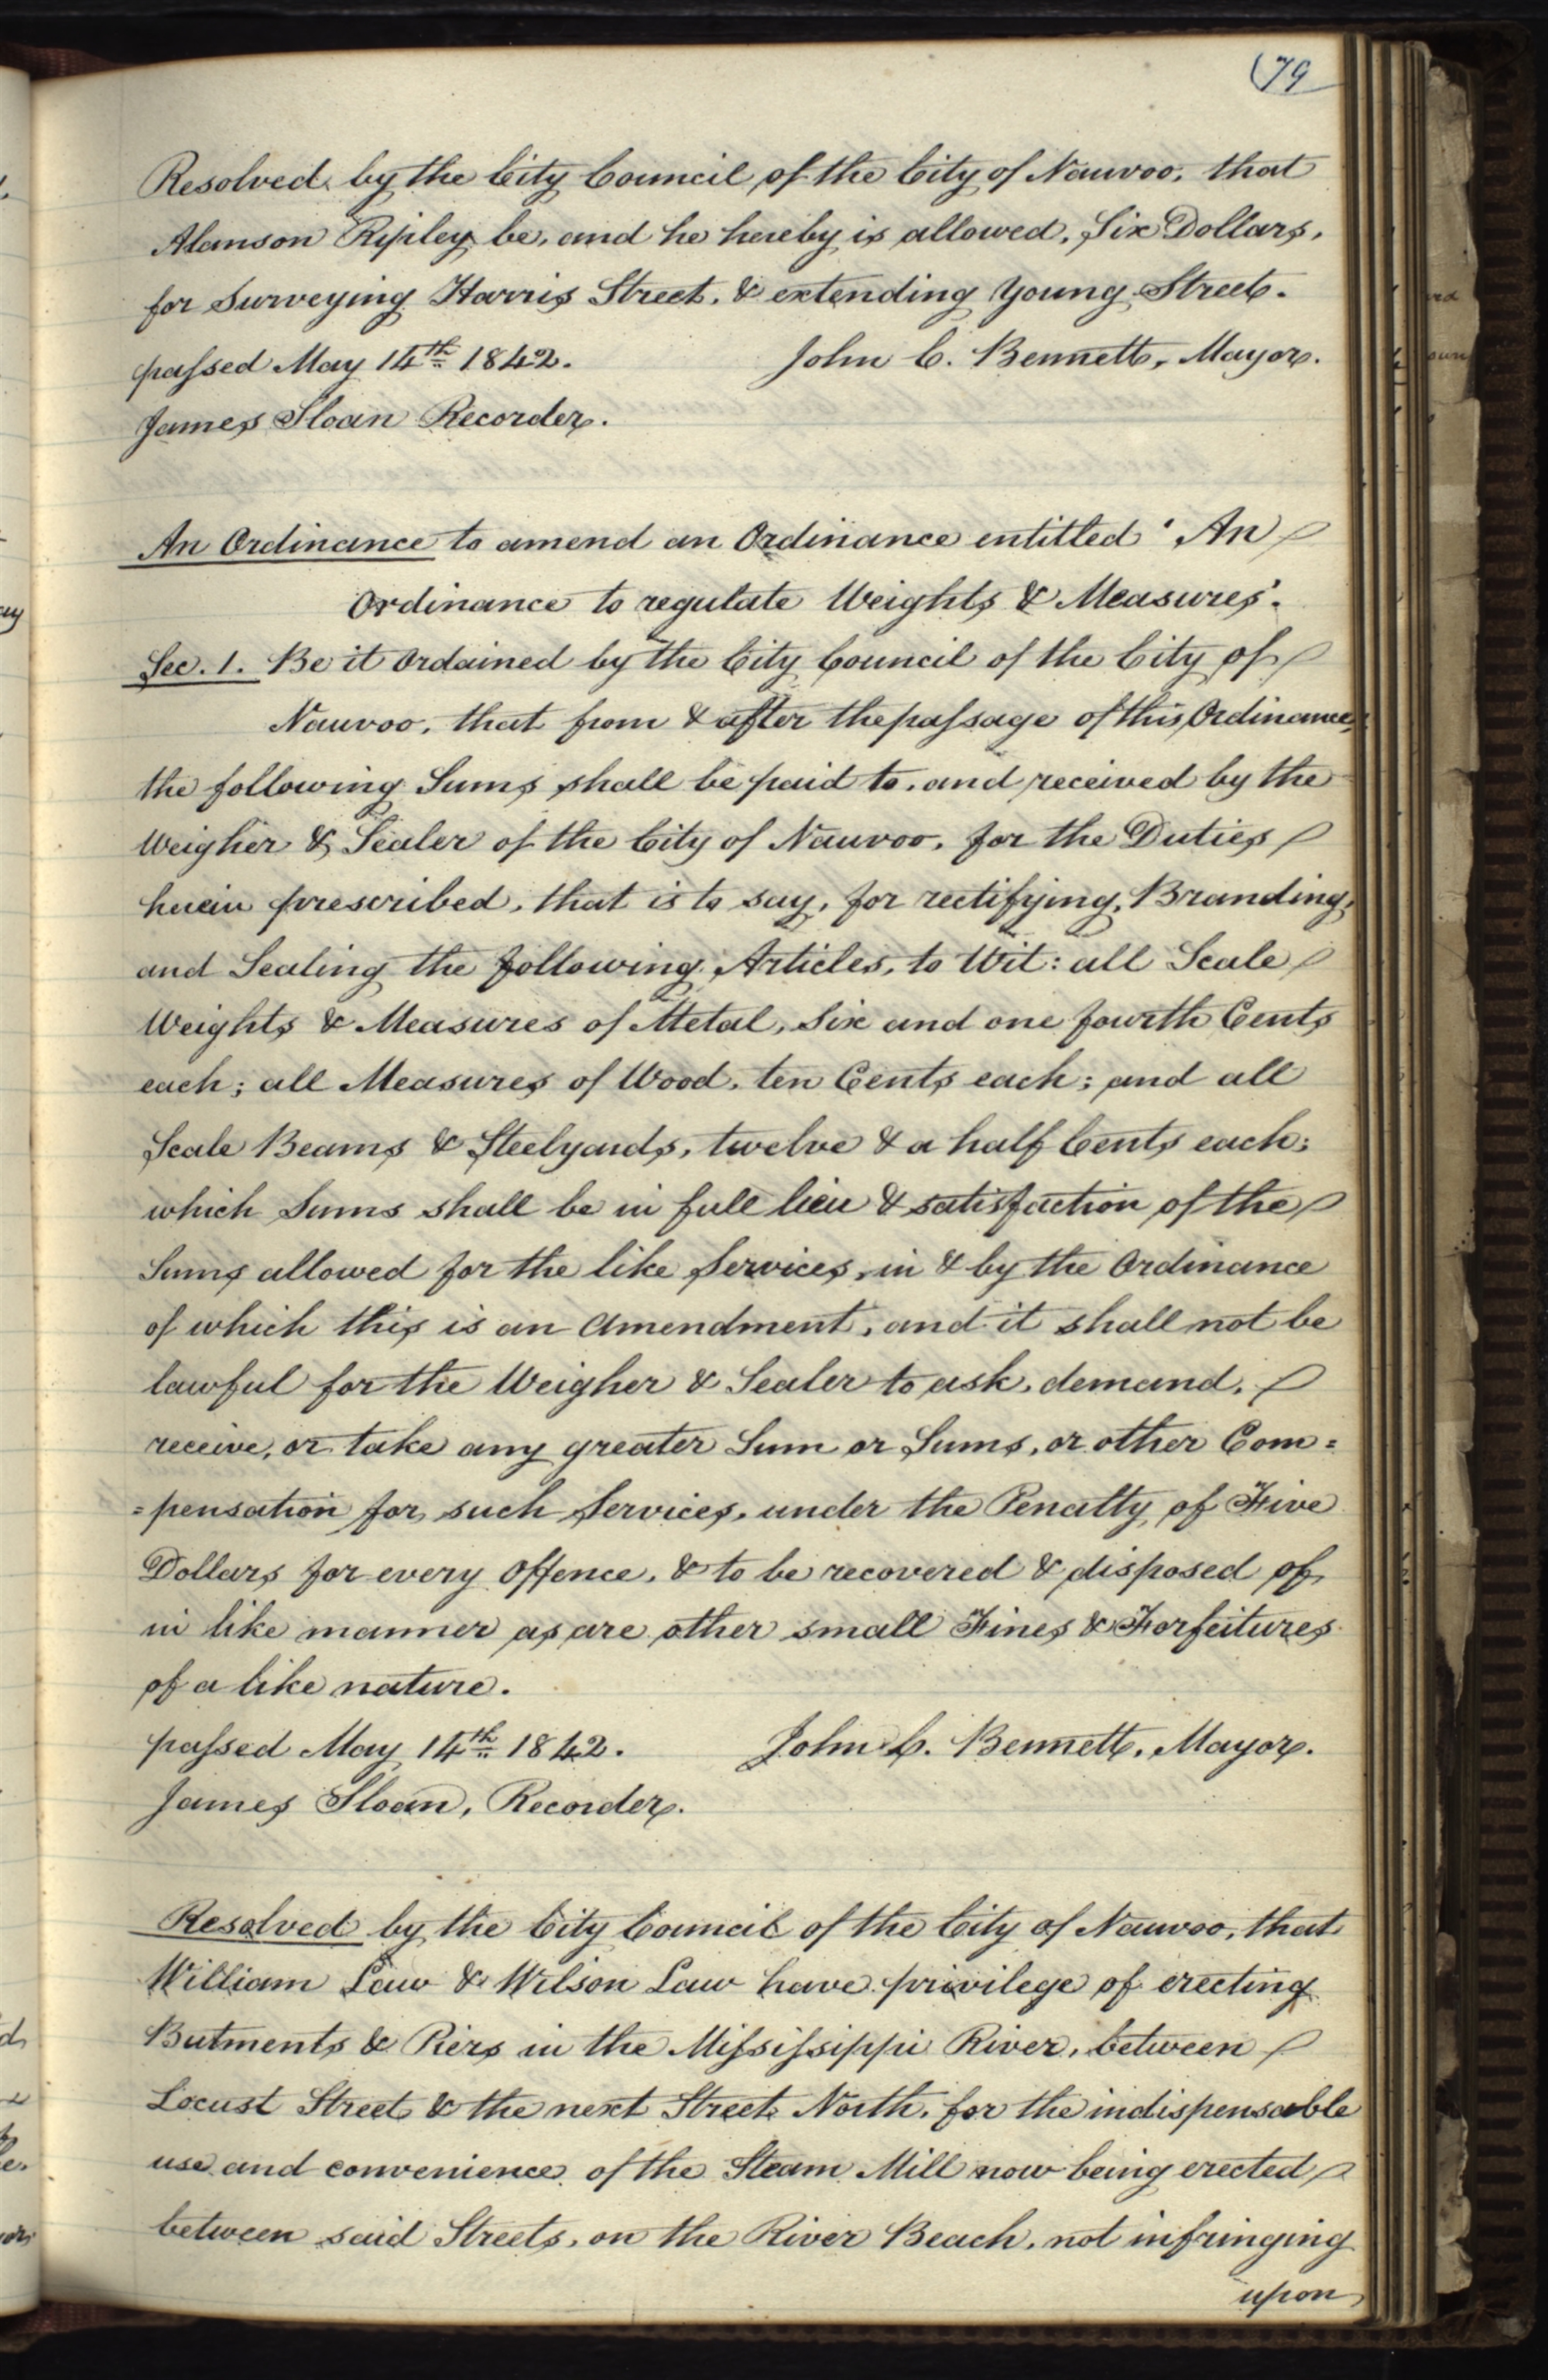 79
Resolved by the City Council of the City of Nauvoo, that
Alanson Ripley be, and he hereby is allowed, Six Dollars,
for Surveying Harris Street, & extending Young Street.
passed May 14th 1842. John C. Bennett, Mayor.
James Sloan Recorder.
An Ordinance to amend an Ordinance entitled "An
Ordinance to regulate Weights & Measures".
Sec. 1. Be it Ordained by the City Council of the City of
Nauvoo, that from & after the passage of this Ordinance,
the following Sums shall be paid to, and received by the
Weigher & Sealer of the City of Nauvoo, for the Duties
herein prescribed, that is to say, for rectifying, Branding,
and Sealing the following Articles, to Wit: all Scale
Weights & Measures of Metal, Six and one fourth Cents
each; all Measures of Wood, ten Cents each; and all
Scale Beams & Steelyards, twelve & a half Cents each;
which Sums shall be in full lieu & satisfaction of the
Sums allowed for the like Services, in & by the Ordinance
of which this is an Amendment, and it shall not be
lawful for the Weigher & Sealer to ask, demand,
receive, or take any greater Sum or Sums, or other Com=
=pensation for such Services, under the Penalty of Five
Dollars for every Offence, & to be recovered & disposed of
in like manner as are other small Fines & Forfeitures
of a like nature.
passed May 14th 1842. John C. Bennett, Mayor.
James Sloan, Recorder.
Resolved by the City Council of the City of Nauvoo, that
William Law & Wilson Law have privilege of erecting
Butments & Piers in the Mississippi River, between
Locust Street & the next Street North, for the indispensable
use and convenience of the Steam Mill now being erected
between said Streets, on the River Beach, not infringing
upon